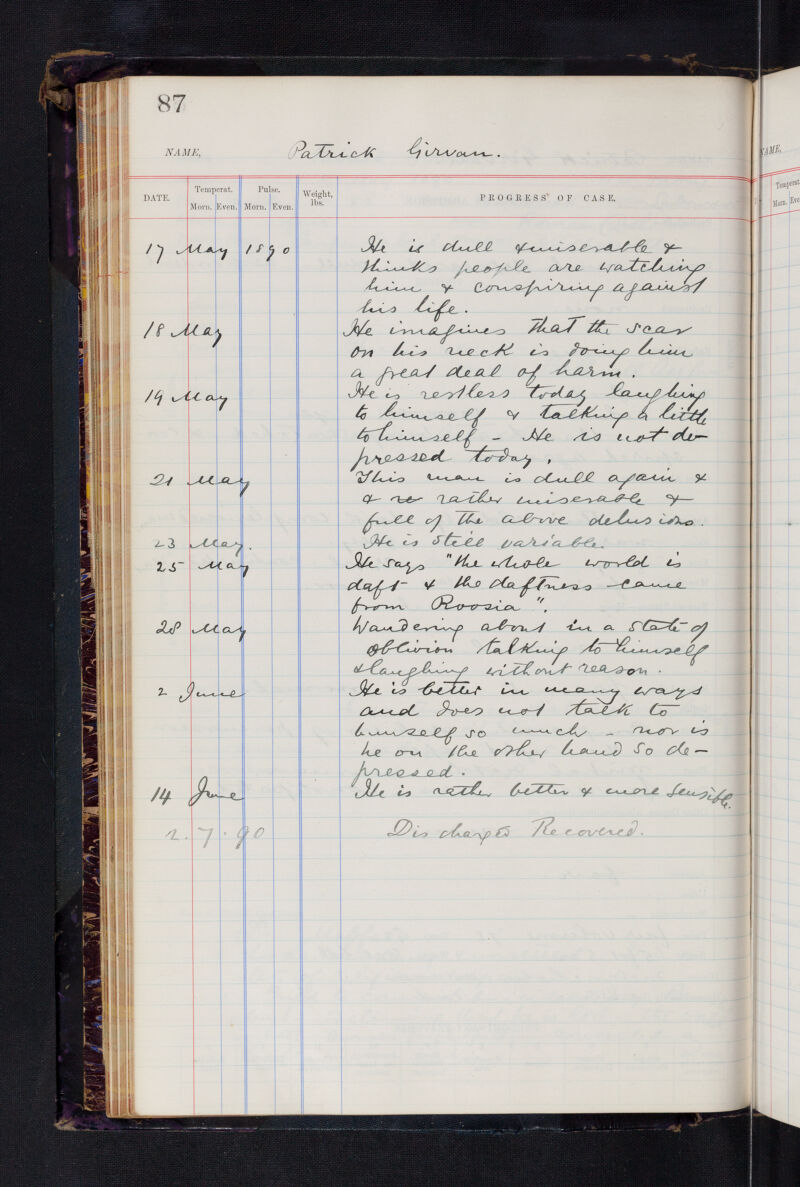 87
NAME, Patrick Girvan.
DATE. Temperat. Pulse. Weight, lbs. PROGRESS OF CASE.
Morn. Even. Morn. Even.
17 May 1890 He is dull & miserable &
thinks people are watching
him & conspiring against
his life.
18 May He imagines that the scar
on his neck is doing him
a great deal of harm.
19 May He is restless today laughing
to himself & talking a little
to himself - He is not de-
pressed today.
21 May This man is dull again &
& re rather miserable &
full of the above delusions.
23 May. He is still variable.
25 May He says "the whole world is
daft & the daftness came
from Roosia".
28 May Wandering about in a state of
oblivion talking to himself
& laughing without reason.
2 June He is better in many ways
and does not talk to
himself so much - nor is
he on the other hand so de-
pressed.
14 June He is rather better & more sensible.
2.7.90 Discharged Recovered.
NAME,
Temperat.
Morn. Eve